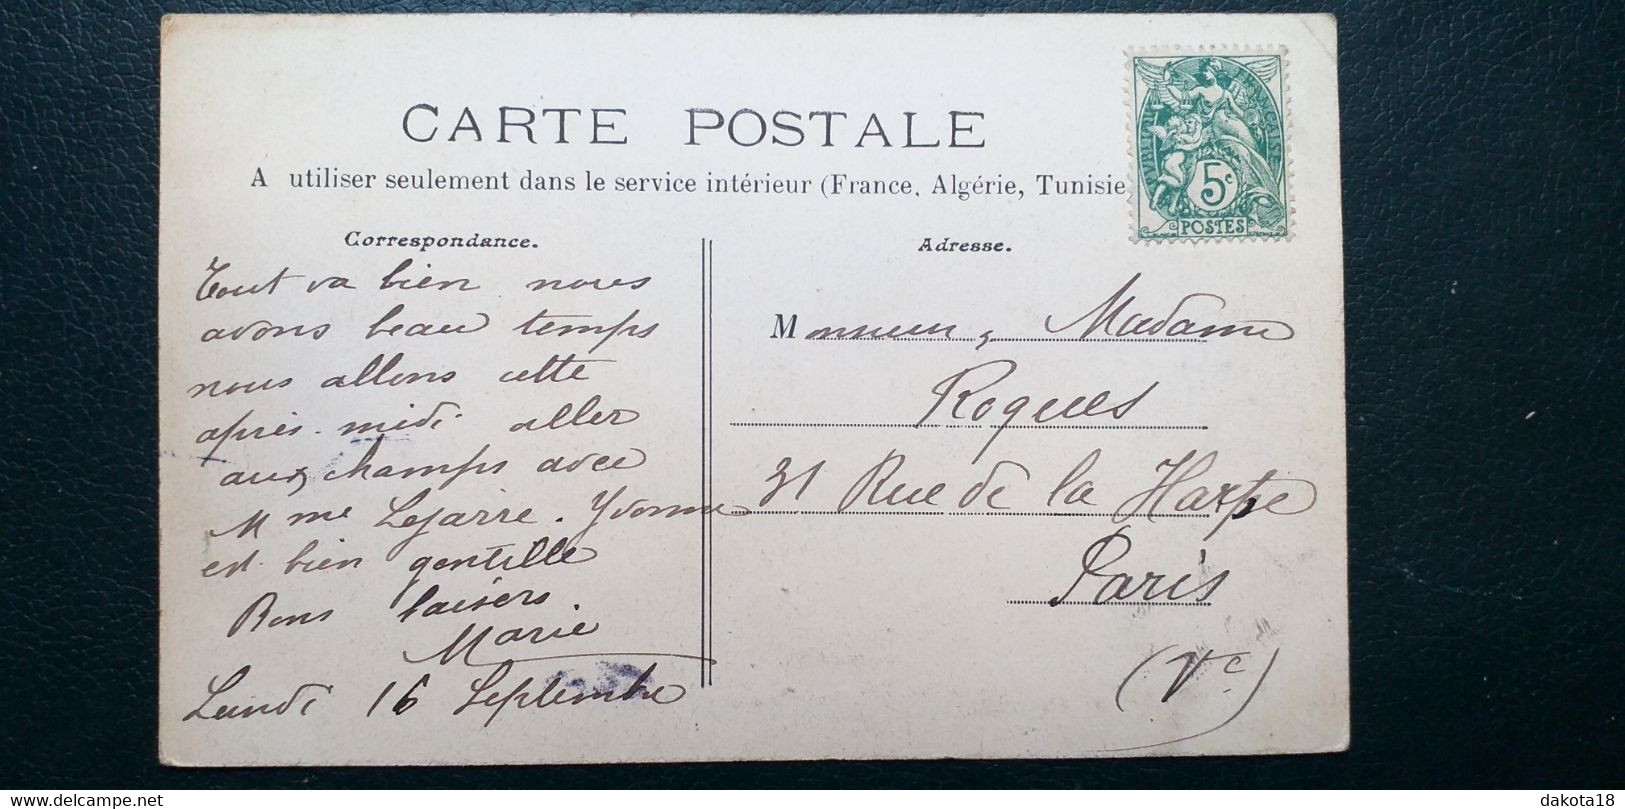 CARTE POSTALE
A utiliser seulement dans le service intérieur (France, Algérie, Tunisie)
Correspondance.
Tout va bien nous
avons beau temps
nous allons cette
après-midi aller
aux champs avec
Mme Lejarre. Yvonne
est bien gentille
Bons baisers.
Marie
Lundi 16 Septembre
Adresse.
Monsieur, Madame
Roques
31 Rue de la Harpe
Paris
(Ve)
5c
POSTES
delcampe.net
dakota18